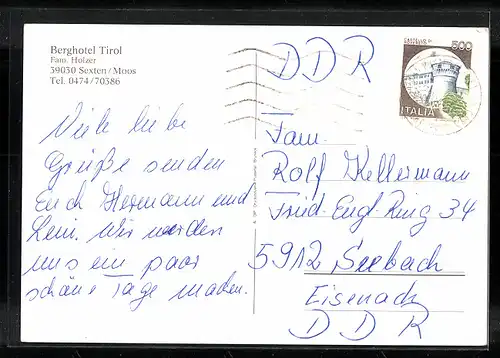 Berghotel Tirol
Fam. Holzer
39030 Sexten/Moos
Tel. 0474/70386
Viele liebe
Grüße senden
Euch Hermann und
Leni. Wir werden
uns ein paar
schöne Tage machen.
DDR
Fam.
Rolf Kellermann
Fried. Engl. Ring 34
5912 Seebach
Eisenach
DDR
500
ITALIA